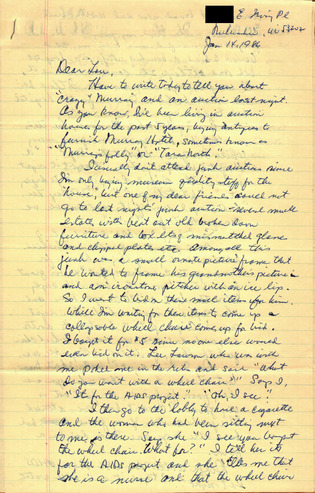 E. Irving Pl
Milwaukee, WI 53202
Jan 14, 1986
Dear Lou,
Have to write today to tell you about
"Crazy" Murray and an auction last night.
As you know, I've been living in auction
houses for the past 5 years, buying antiques to
furnish Murray Hotel, sometimes known as
"Murray's folly" or "Tara North."
I usually don't attend junk auctions since
I'm only buying museum quality stuff for the
house, but one of my dear friends could not
go to last night's junk auction - several small
estates with beat out old broken down
furniture and box lots of mismatched glass
and chipped plates etc. Among all this
junk was a small ornate picture frame that
he wanted to frame his grandmother's picture in
and an ironstone pitcher with an ice lip.
So I went to bid on these small items for him.
While I'm waiting for these items to come up a
collapsible wheel chair comes up for bid.
I bought it for $5 since no one else would
even bid on it. Lee who was with
me poked me in the ribs and said "What
do you want with a wheel chair?" Says I,
"It's for the AIDS project." "Oh, I see."
I then go to the lobby to have a cigarette
and the woman who had been sitting next
to me is there. Says she "I see you bought
the wheel chair. What for?" I tell her it's
for the AIDS project and she tells me that
she is a nurse and that the wheel chair